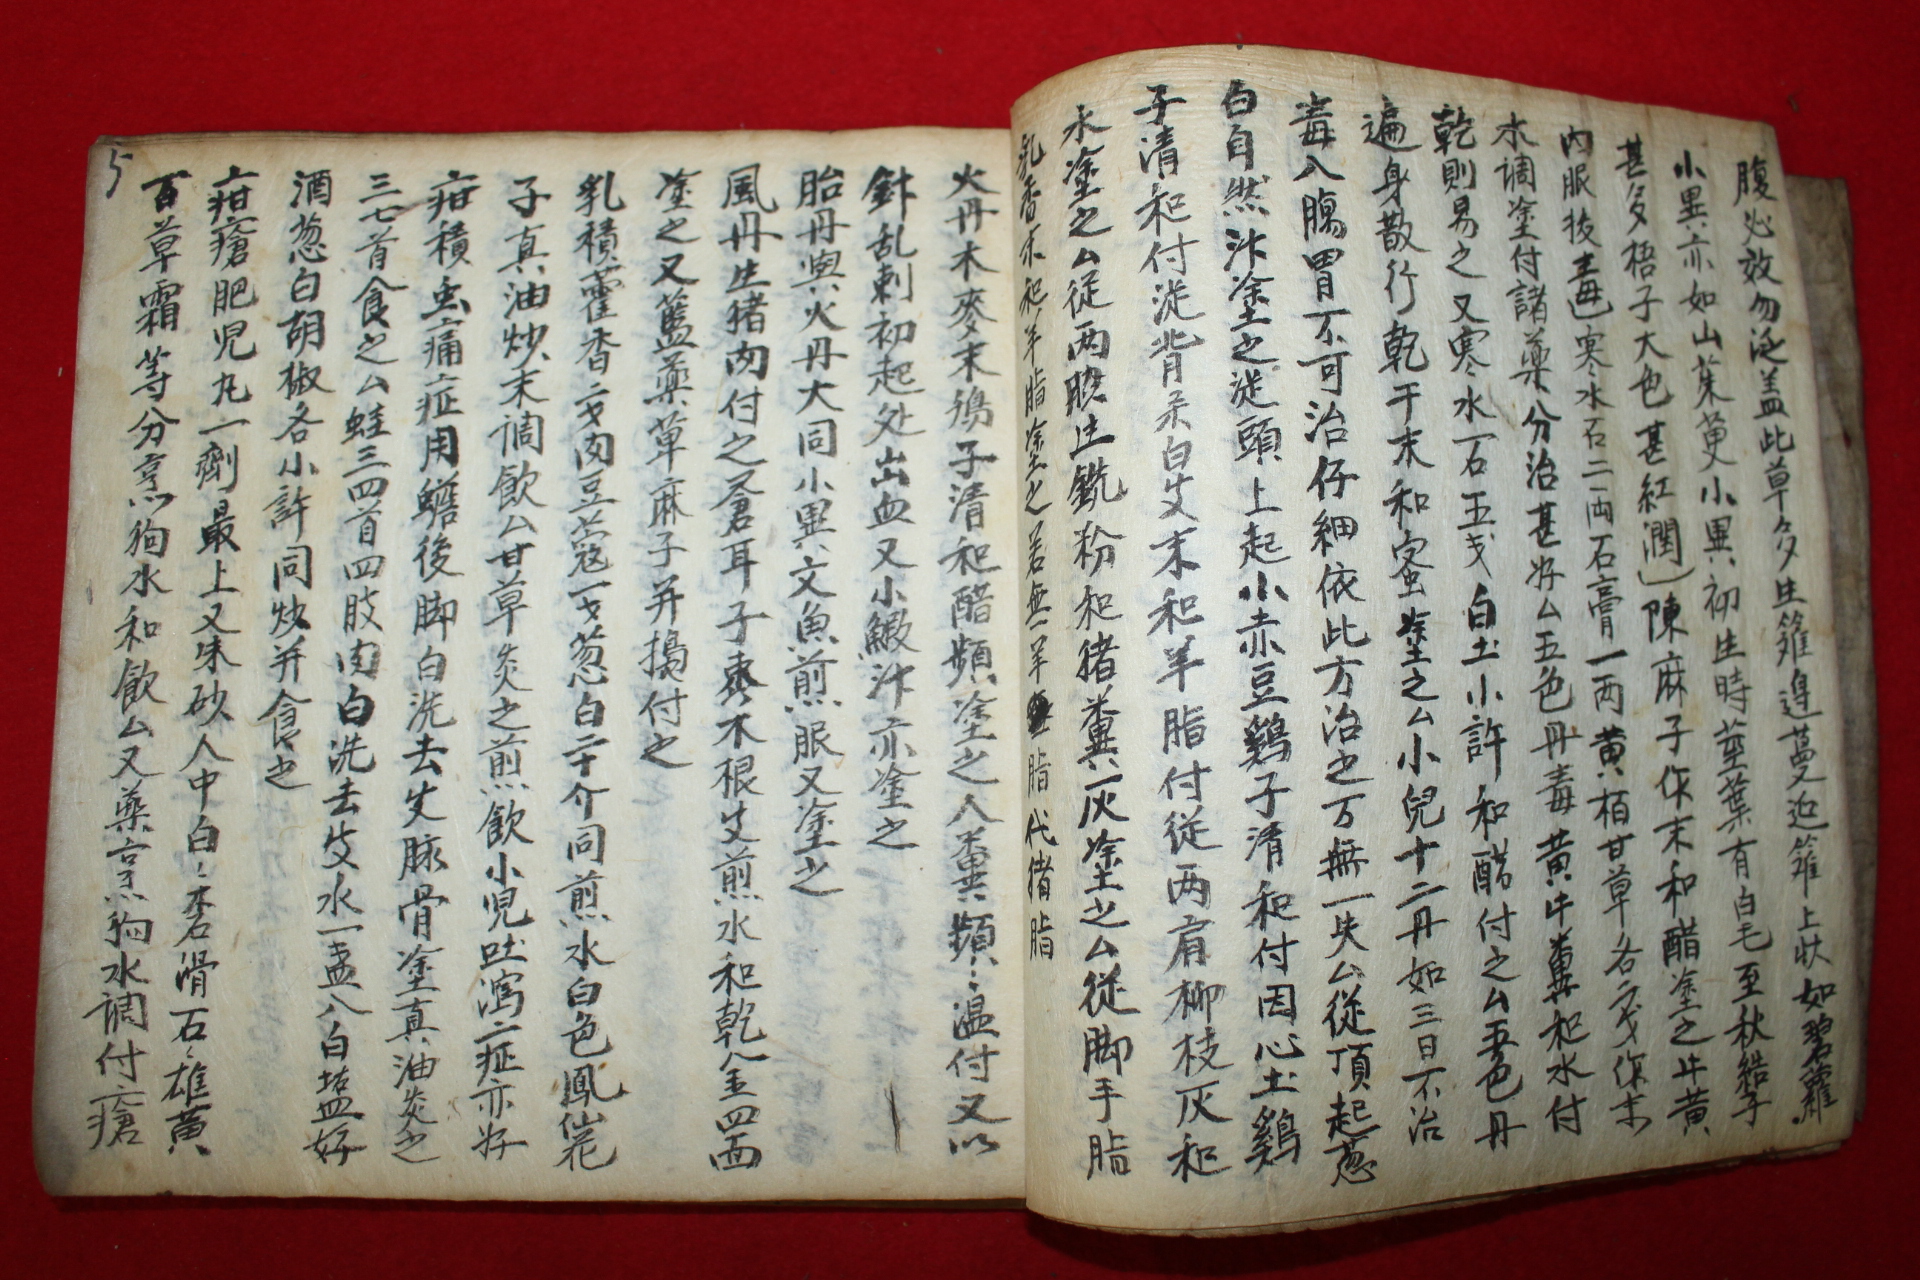 腹必效勿泛盖此草多生籬邊蔓延籬上狀如碧蘿
小異亦如山茱萸小異初生時莖葉有白毛至秋結子
甚多梧子大色甚紅潤陳麻子作末和醋塗之牛黃
內服後毒寒水石二両石膏一两黄栢甘草各戔作末
水调塗付諸藥分治甚好厶五色丹毒黄牛糞和水付
乾則易之又寒水石五戔白土小許和醋付之厶五色丹
遍身散行乾干末和蜜塗之厶小兒十二丹如三日不治
毒入膓胃不可治仔細依此方治之万無一失厶從頂起葱
白自然汁塗之從頭上起小赤豆鷄子清和付因心土鷄
子清和付從背柔白艾末和羊脂付從两肩柳枝灰和
水塗之厶從两脥生銑粉和猪糞灰塗之厶從脚手脂
乳香末和羊脂塗之若無羊脂代猪脂
火丹木麥末鴠子清和醋頻塗之人糞頻〻温付又以
針乱刺初起处出血又小鰍汁亦塗之
胎丹與火丹大同小異文魚煎服又塗之
風丹生猪肉付之蒼耳子枣木根艾煎水和乾全四面
塗之又藍藥草麻子并搗付之
乳積藿香二戈肉豆蔻一戈葱白二十介同煎水白色鳳仙花
子真油炒末调飲厶甘草炙之煎飲小児吐瀉亡症亦好
疳積虫痛症用蟾後脚白洗去艾脉骨塗真油炙之
三七首食之厶蛙三四首四肢肉白洗去艾水一盞入白塩好
酒葱白胡椒各小許同炒并食之
疳瘡肥児丸一劑最上又朱砂人中白〻礬滑石〻雄黄
百草霜等分烹狗水和飲厶又藥烹狗水调付瘡
5